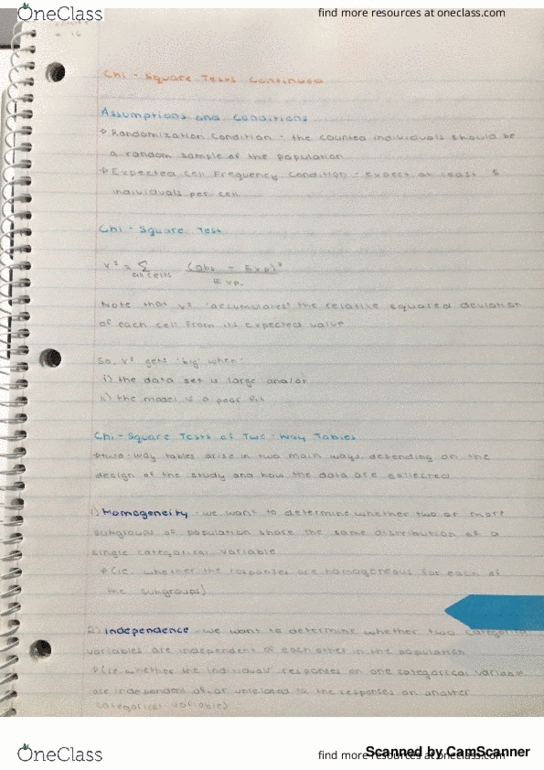 OneClass
find more resources at oneclass.com
# 16
Chi-Square Tests Continued
Assumptions and Conditions
Randomization Condition - the counted individuals should be
a random sample of the population
Expected Cell Frequency Condition - Expect at least 5
individuals per cell
Chi-Square Test
x² = Σ all cells (Obs - Exp)² / Exp.
Note that x² "accumulates" the relative squared deviation
of each cell from its expected value
So, x² gets "big" when:
i) the data set is large and/or
ii) the model is a poor fit
Chi-Square Tests of Two-Way Tables
two-way tables arise in two main ways, depending on the
design of the study and how the data are collected
1) Homogeneity - we want to determine whether two or more
subgroups of population share the same distribution of a
single categorical variable
(ie whether the responses are homogeneous for each of
the subgroups)
2) Independence - we want to determine whether two categorical
variables are independent of each other in the population
(ie whether the individuals' responses on one categorical variable
are independent of, or unrelated to the responses on another
categorical variable)
OneClass
find more resources at oneclass.com
Scanned by CamScanner